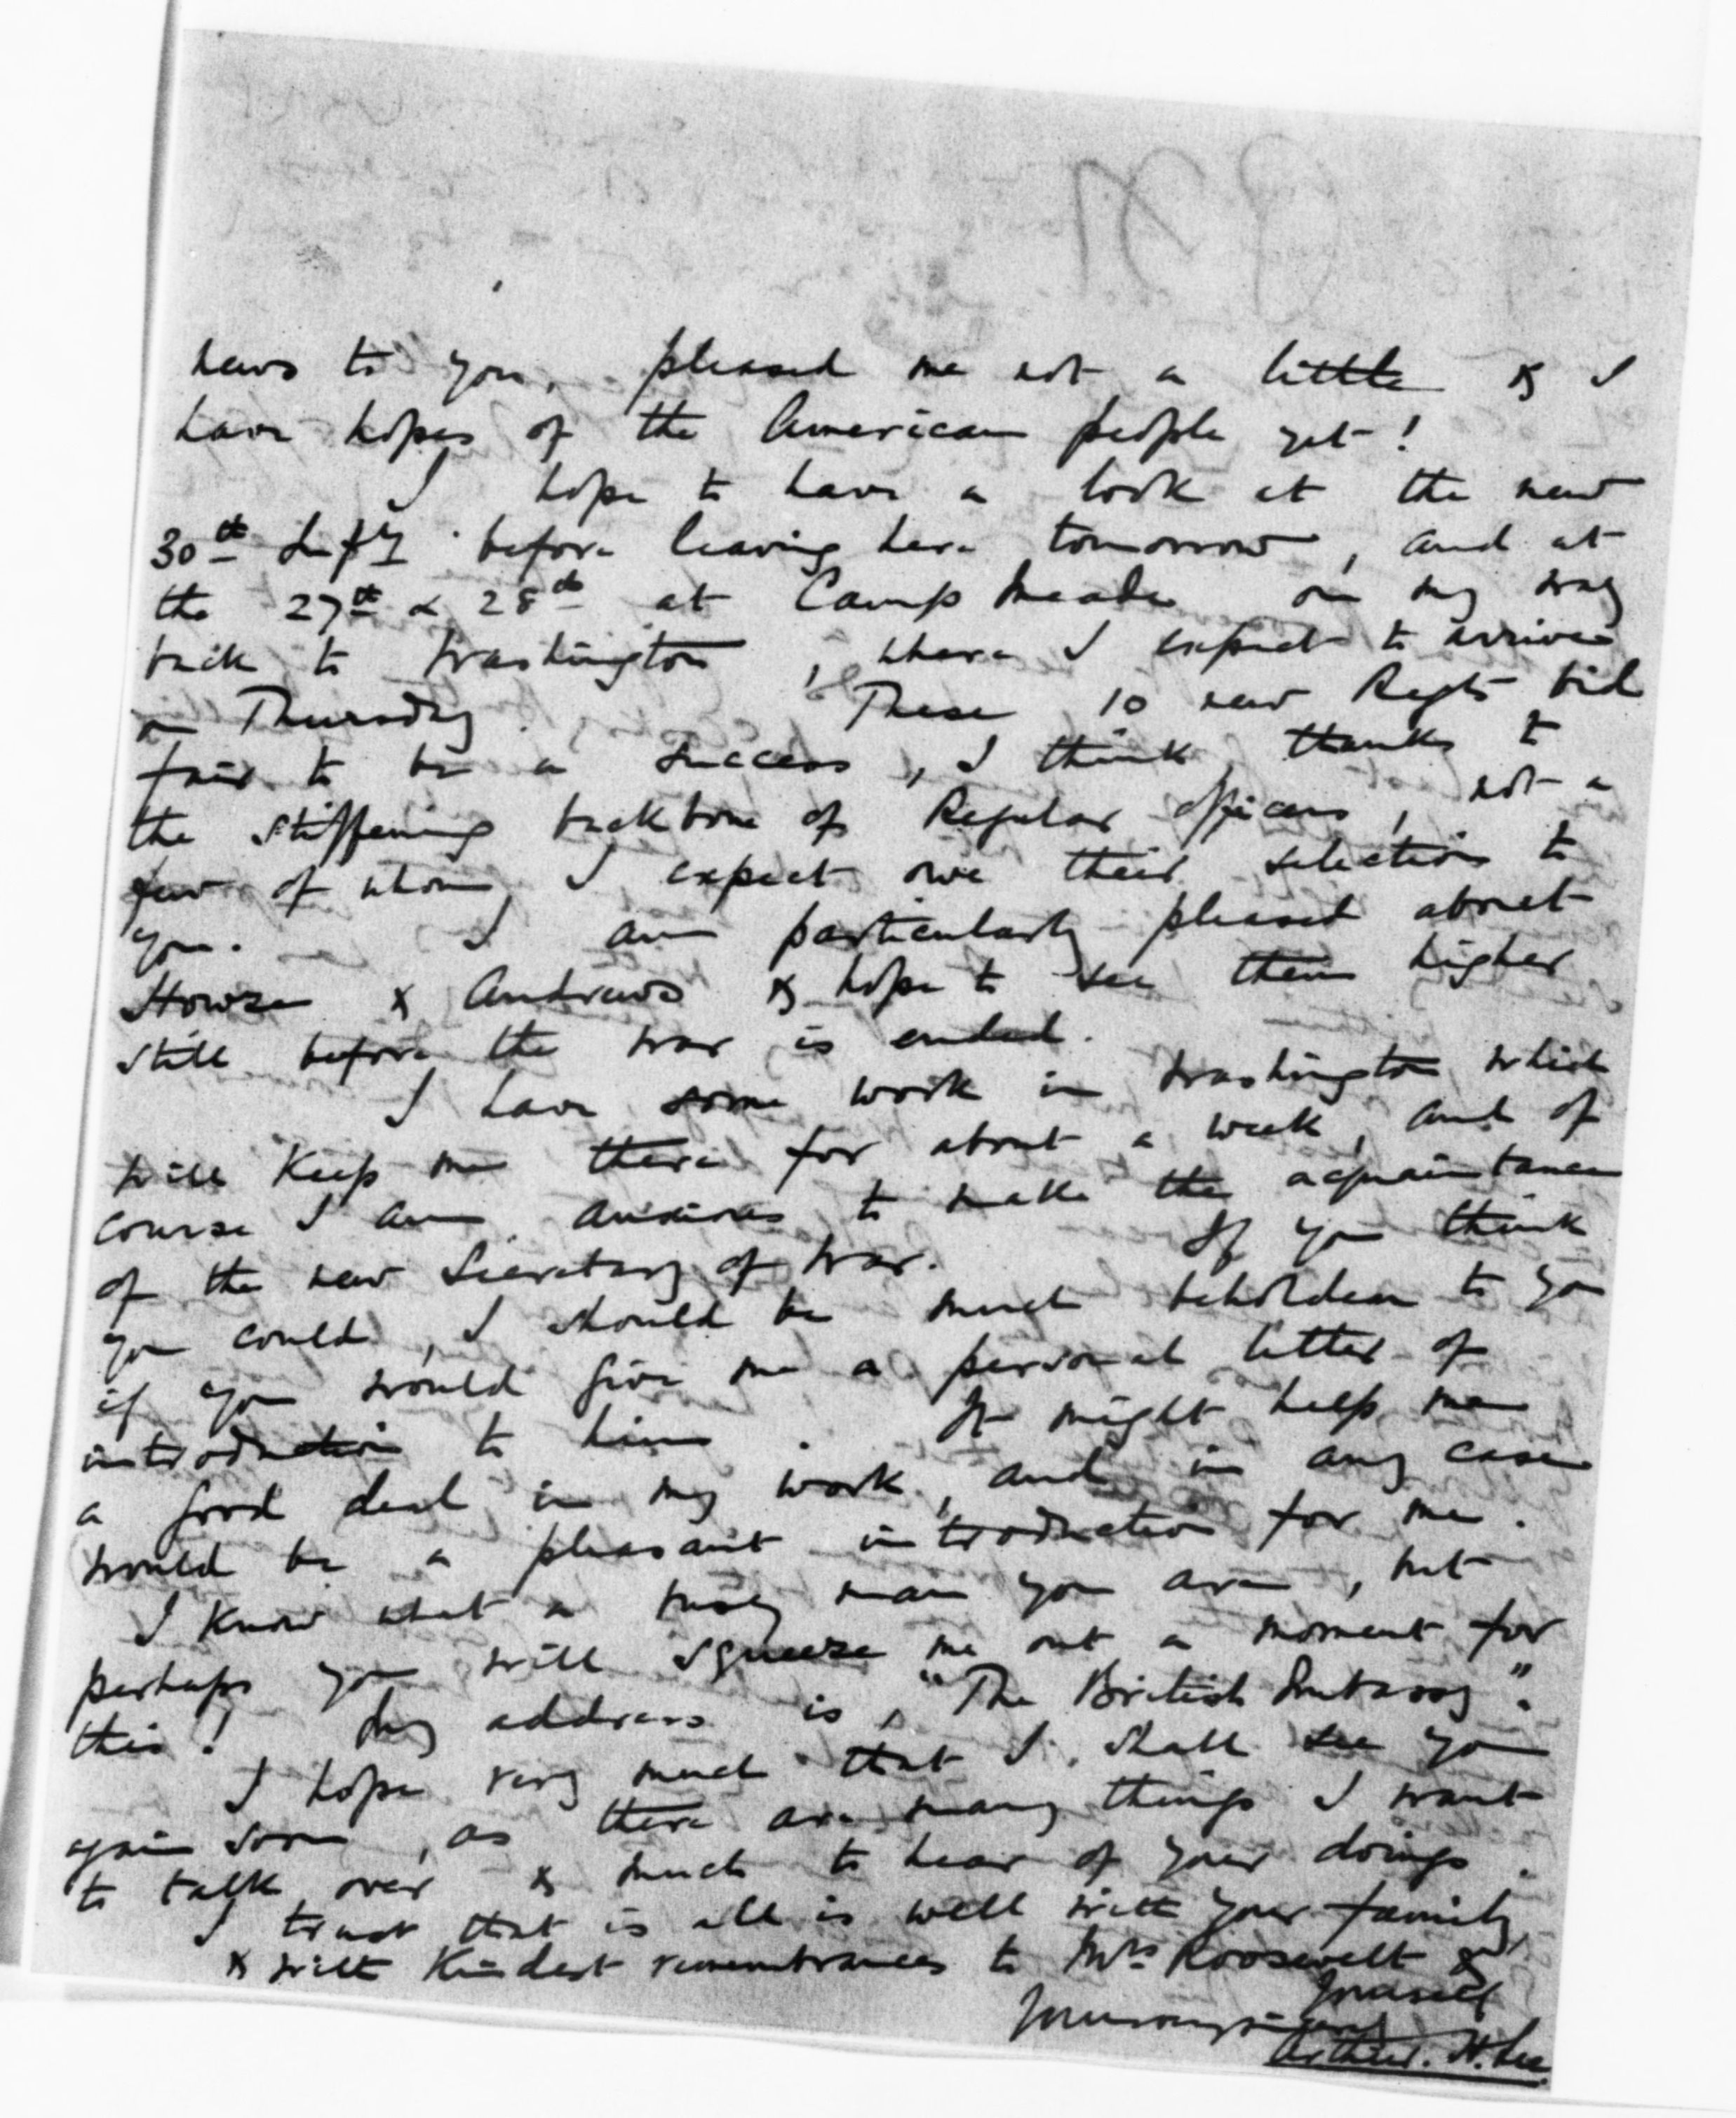 news to you, pleased me not a little & I
have hopes of the American people yet!
I hope to have a look at the new
30th Infy before leaving here tomorrow, and at
the 27th & 28th at Camp Meade on my way
back to Washington, where I expect to arrive
on Thursday. These 10 new Regts bid
fair to be a success, I think, thanks to
the stiffening backbone of Regular officers, not a
few of whom, I expect owe their selection to
you. I am particularly pleased about
Howze & Andrews & hope to see them higher
still before the war is ended.
I have some work in Washington which
will keep me there for about a week, and of
course I am anxious to make the acquaintance
of the new Secretary of War. If you think
you could, I should be much beholden to you
if you would give me a personal letter of
introduction to him. It might help me
a good deal in my work, and in any case
would be a pleasant introduction for me.
I know what a busy man you are, but
perhaps you will squeeze me out a moment for
this! My address is, "The British Embassy".
I hope very much that I shall see you
again soon, as there are many things I want
to talk over & much to hear of your doings.
I trust that is all is well with your family,
& with kindest remembrances to Mrs Roosevelt &
yourself
Yours very sincerely
Arthur. H. Lee.